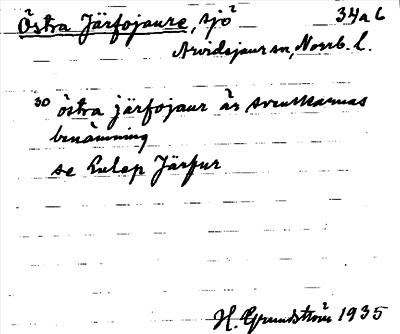 Östra Järfojaure, sjö 34a6
Arvidsjaur sn, Norrb. l.
30 östra järfojaur är svenskarnas
benämning
se Lulep Järfur
H. Grundström 1935